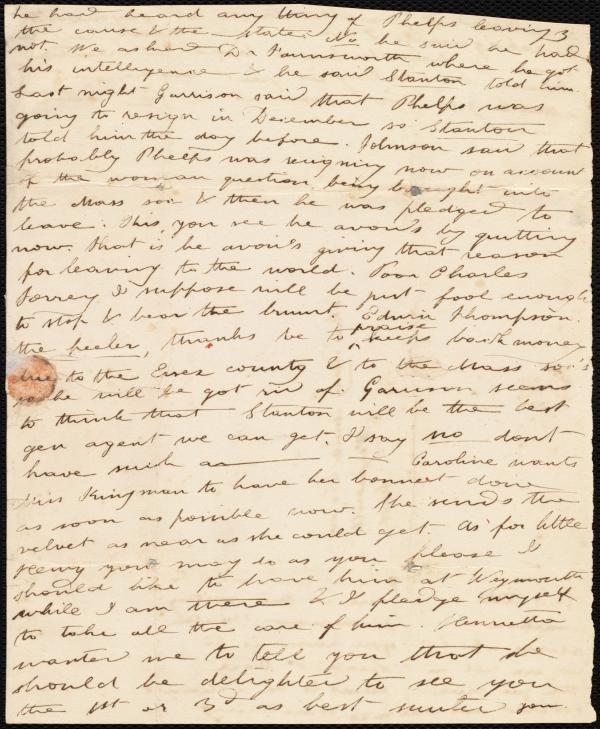 he had heard any thing of Phelps leaving 3
the cause & the state. No he said he had
not. We asked Dr Farnsworth where he got
his intelligence & he said Stanton told him.
Last night Garrison said that Phelps was
going to resign in December so Stanton
told him the day before. Johnson said that
probably Phelps was resigning now on account
of the woman question being brought into
the Mass soc & then he was pledged to
leave. This, you see he avoids by quitting
now. that is he avoids giving that reason
for leaving to the world. Poor Charles
I suppose will be just fool enough
to stop & bear the brunt. Edwin Thompson.
the peeler, thanks be to praise keeps back money
due to the Essex county & to the Mass soc's
so he will be got rid of. Garrison seems
to think that Stanton will be the best
gen agent we can get. I say no dont
have such a Caroline wants
Miss Kingman to have her bonnet done
as soon as possible now. She sends the
velvet as near as she could get. As for little
Henry you may do as you please I
should like to have him at Weymouth
while I am there & I pledge myself
to take all the care of him. Henrietta
wanted me to tell you that she
should be delighted to see you
the 1st or 3d as best suited you.